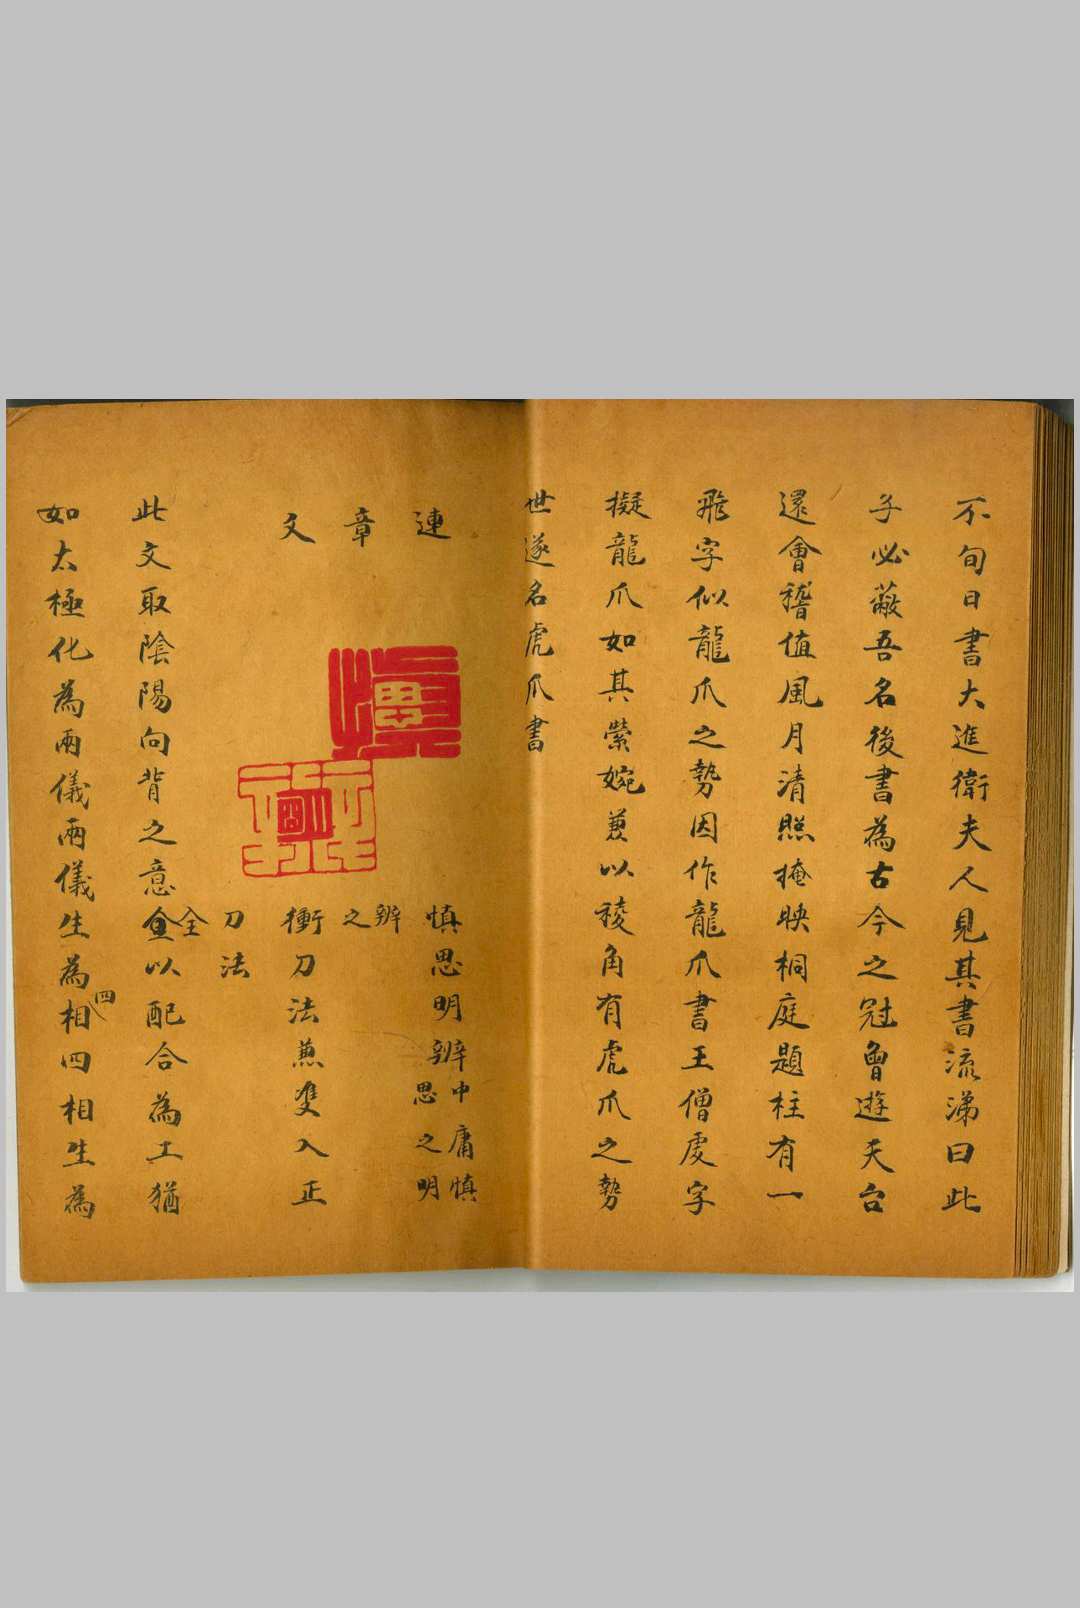 不旬日書大進衛夫人見其書流涕曰此
子必蔽吾名後書為古今之冠曾遊天台
還會稽值風月清照掩映桐庭題柱有一
飛字似龍爪之勢因作龍爪書王僧虔字
擬龍爪如其縈婉兼以稜角有虎爪之勢
世遂名虎爪書
連章文
慎思
明辨
慎思明辨
中庸慎
思之明
辨之
衝刀法兼雙入正
刀法
此文取陰陽向背之意全以配合為工猶
如太極化為兩儀兩儀生為四相四相生為